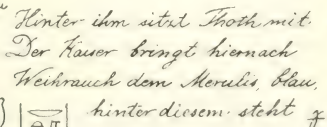 Hinter ihm sitzt Thoth mit.
Der Kaiser bringt hiernach
Weihrauch dem Merulis, blau,
hinter diesem steht